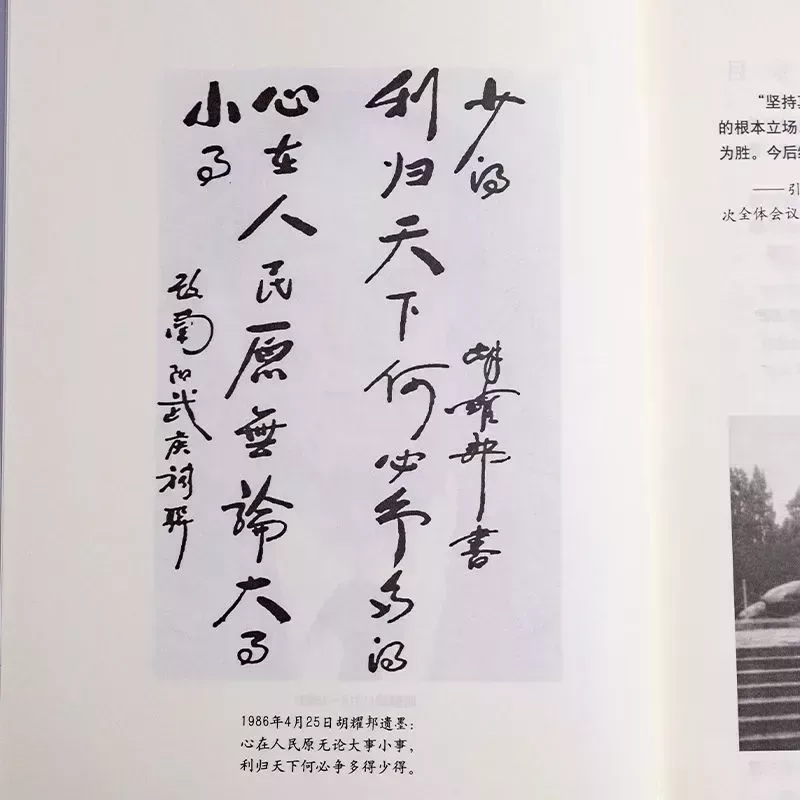 心在人民原無論大事
小事
改南阳武侯祠联
利归天下何必争多得
少得
胡耀邦书
1986年4月25日胡耀邦遗墨：
心在人民原无论大事小事，
利归天下何必争多得少得。
“坚持
的根本立场
为胜。今后
——引
次全体会议